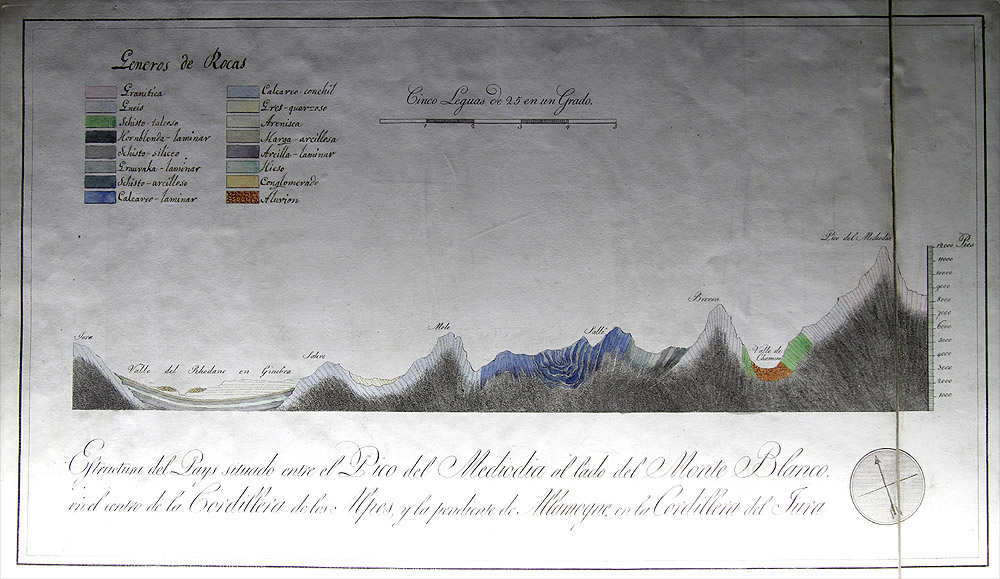 Generos de Rocas
Granitica
Gneis
Schisto-talcoso
Hornblenda-laminar
Schisto-siliceo
Grauvaka-laminar
Schisto-arcilloso
Calcareo-laminar
Calcareo-conchil
Gres-quarzoso
Arenisca
Marga-arcillosa
Arcilla-laminar
Hieso
Conglomerado
Aluvion
Cinco Leguas de 25 en un Grado.
1 2 3 4 5
Pico del Mediodia
12000 Pies
11000
10000
9000
8000
7000
6000
5000
4000
3000
2000
1000
Breven
Mole
Salle
Valle de
Chamoni
Jura
Salere
Valle del Rhodano en Ginebra
Estructura del Pays situado entre el Pico del Mediodia al lado del Monte Blanco.
en el centro de la Cordillera de los Alpes, y la pendiente de Allamogne, en la Cordillera del Jura